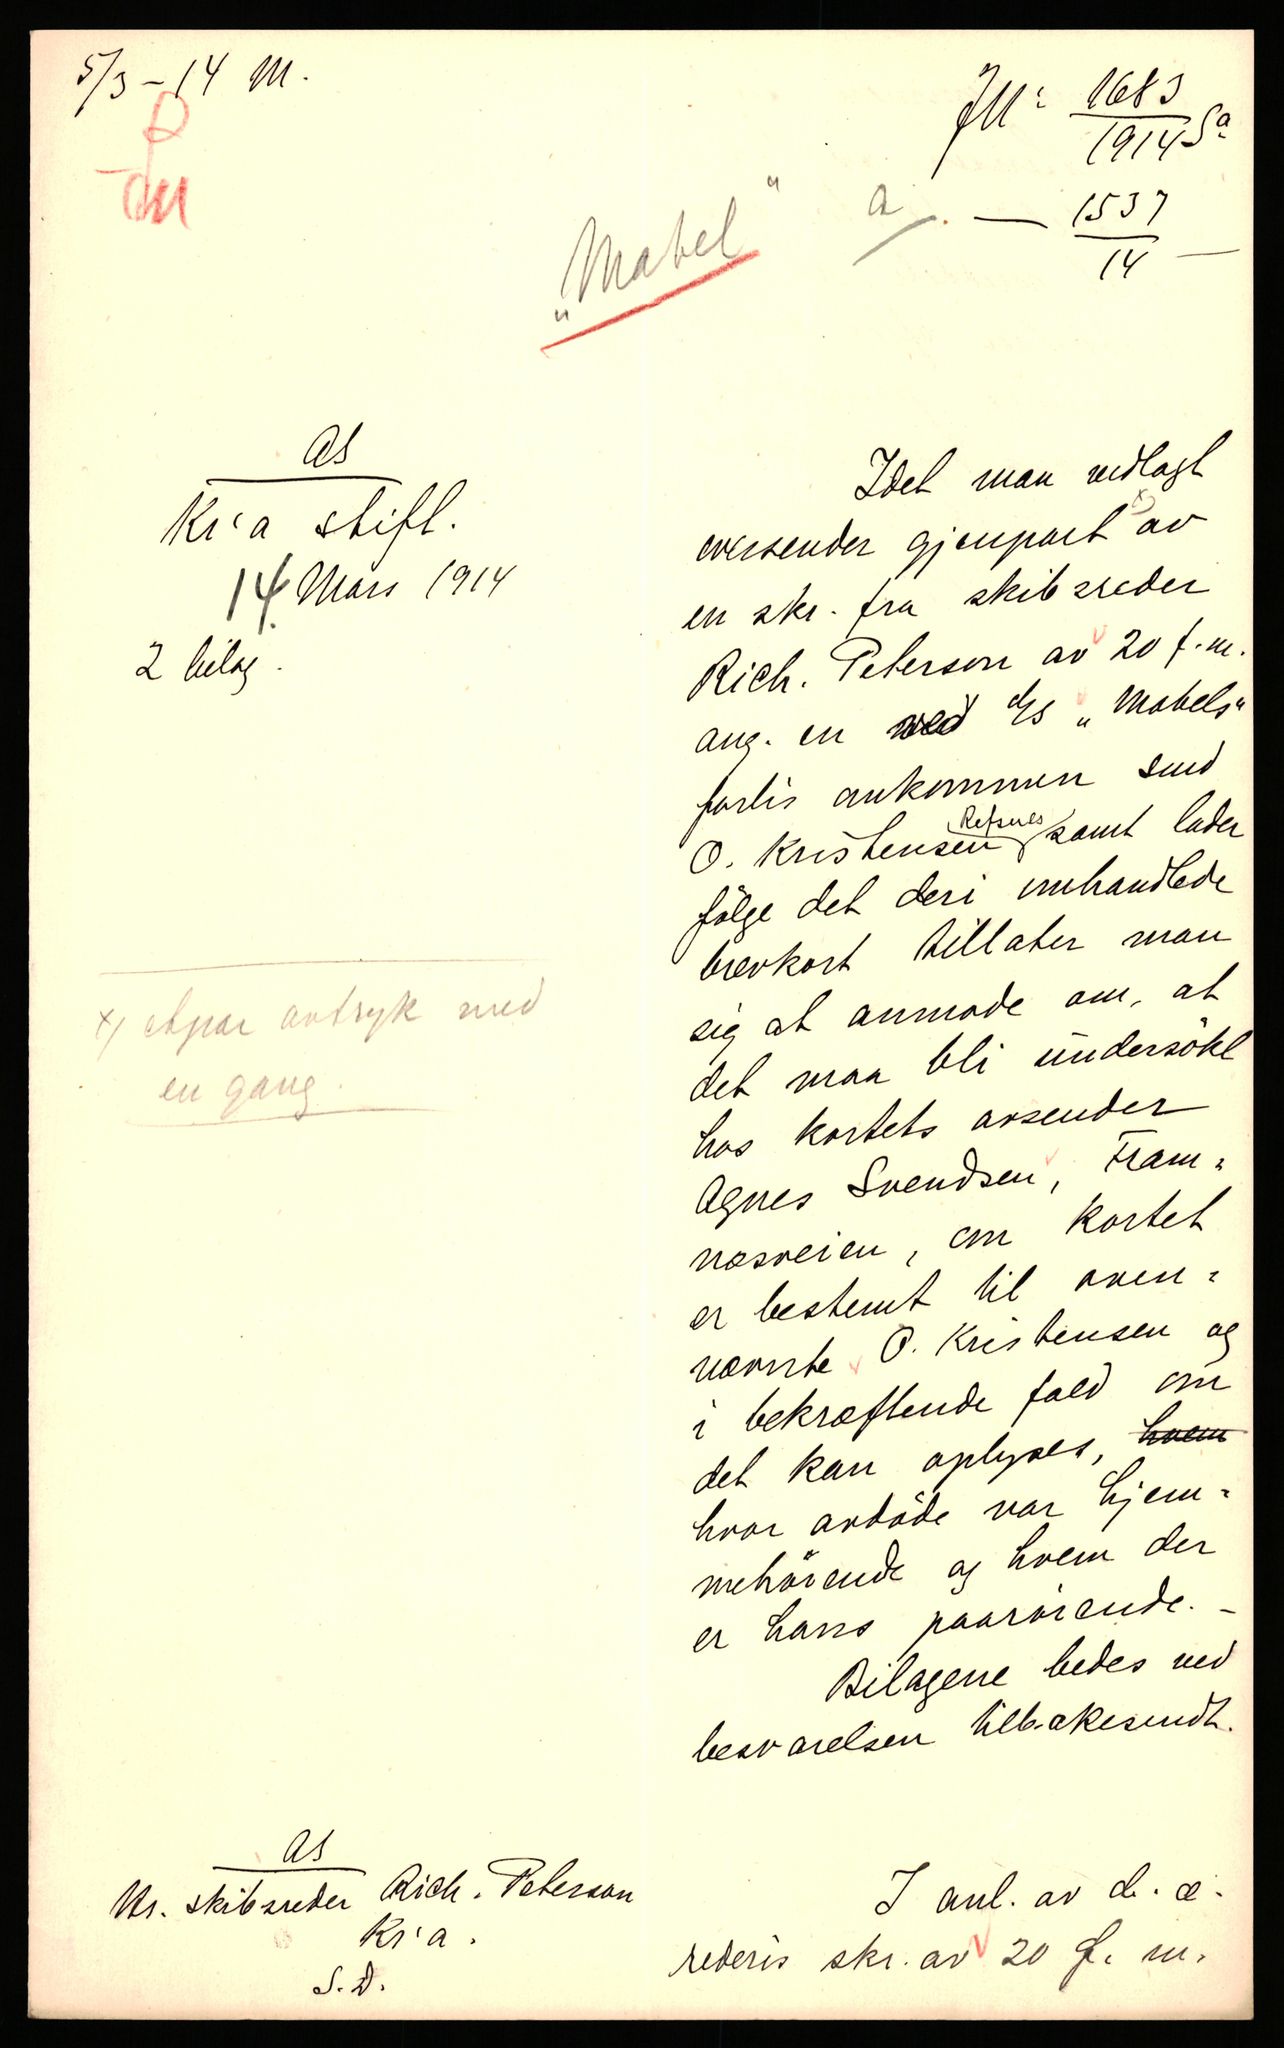 5/3 - 14 M.
JN: 1683/1914 Sa
a. — 1537/14 —
"Mabel"
AS
Kr:a stift.
14. Mars 1914
2 bilag.
Idet man vedlagt
oversender gjenpart x) av
en skr. fra skibsreder
Rich. Peterson av 20 f.m.
ang. en ved D/S "Mabels"
forlis omkommen smd
O. Kristensen Refsnes samt lader
följe det deri omhandlede
brevkort tillater man
sig at anmode om, at
det maa bli undersökt
hos kortets avsender
Agnes Svendsen, Fram-
næsveien, om kortet
er bestemt til oven-
nævnte O. Kristensen og
i bekræftende fald om
det kan oplyses, hvem
hvor avdöde var hjem-
mehörende og hvem der
er hans paarörende. -
Bilagene bedes ved
besvarelsen tilbakesendt.
x) avtryk med
en gang.
AS
Hr. skibsreder Rich. Peterson
Kr:a.
S.D.
I anl. av d. æ.
rederis skr. av 20 f. m.